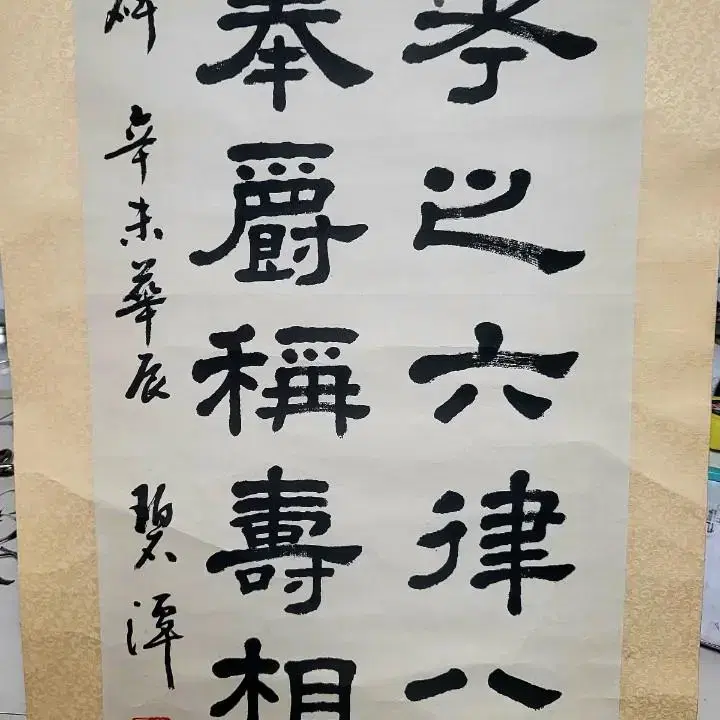 考之六律八
奉爵稱壽相
碑 辛未華辰 碧潭